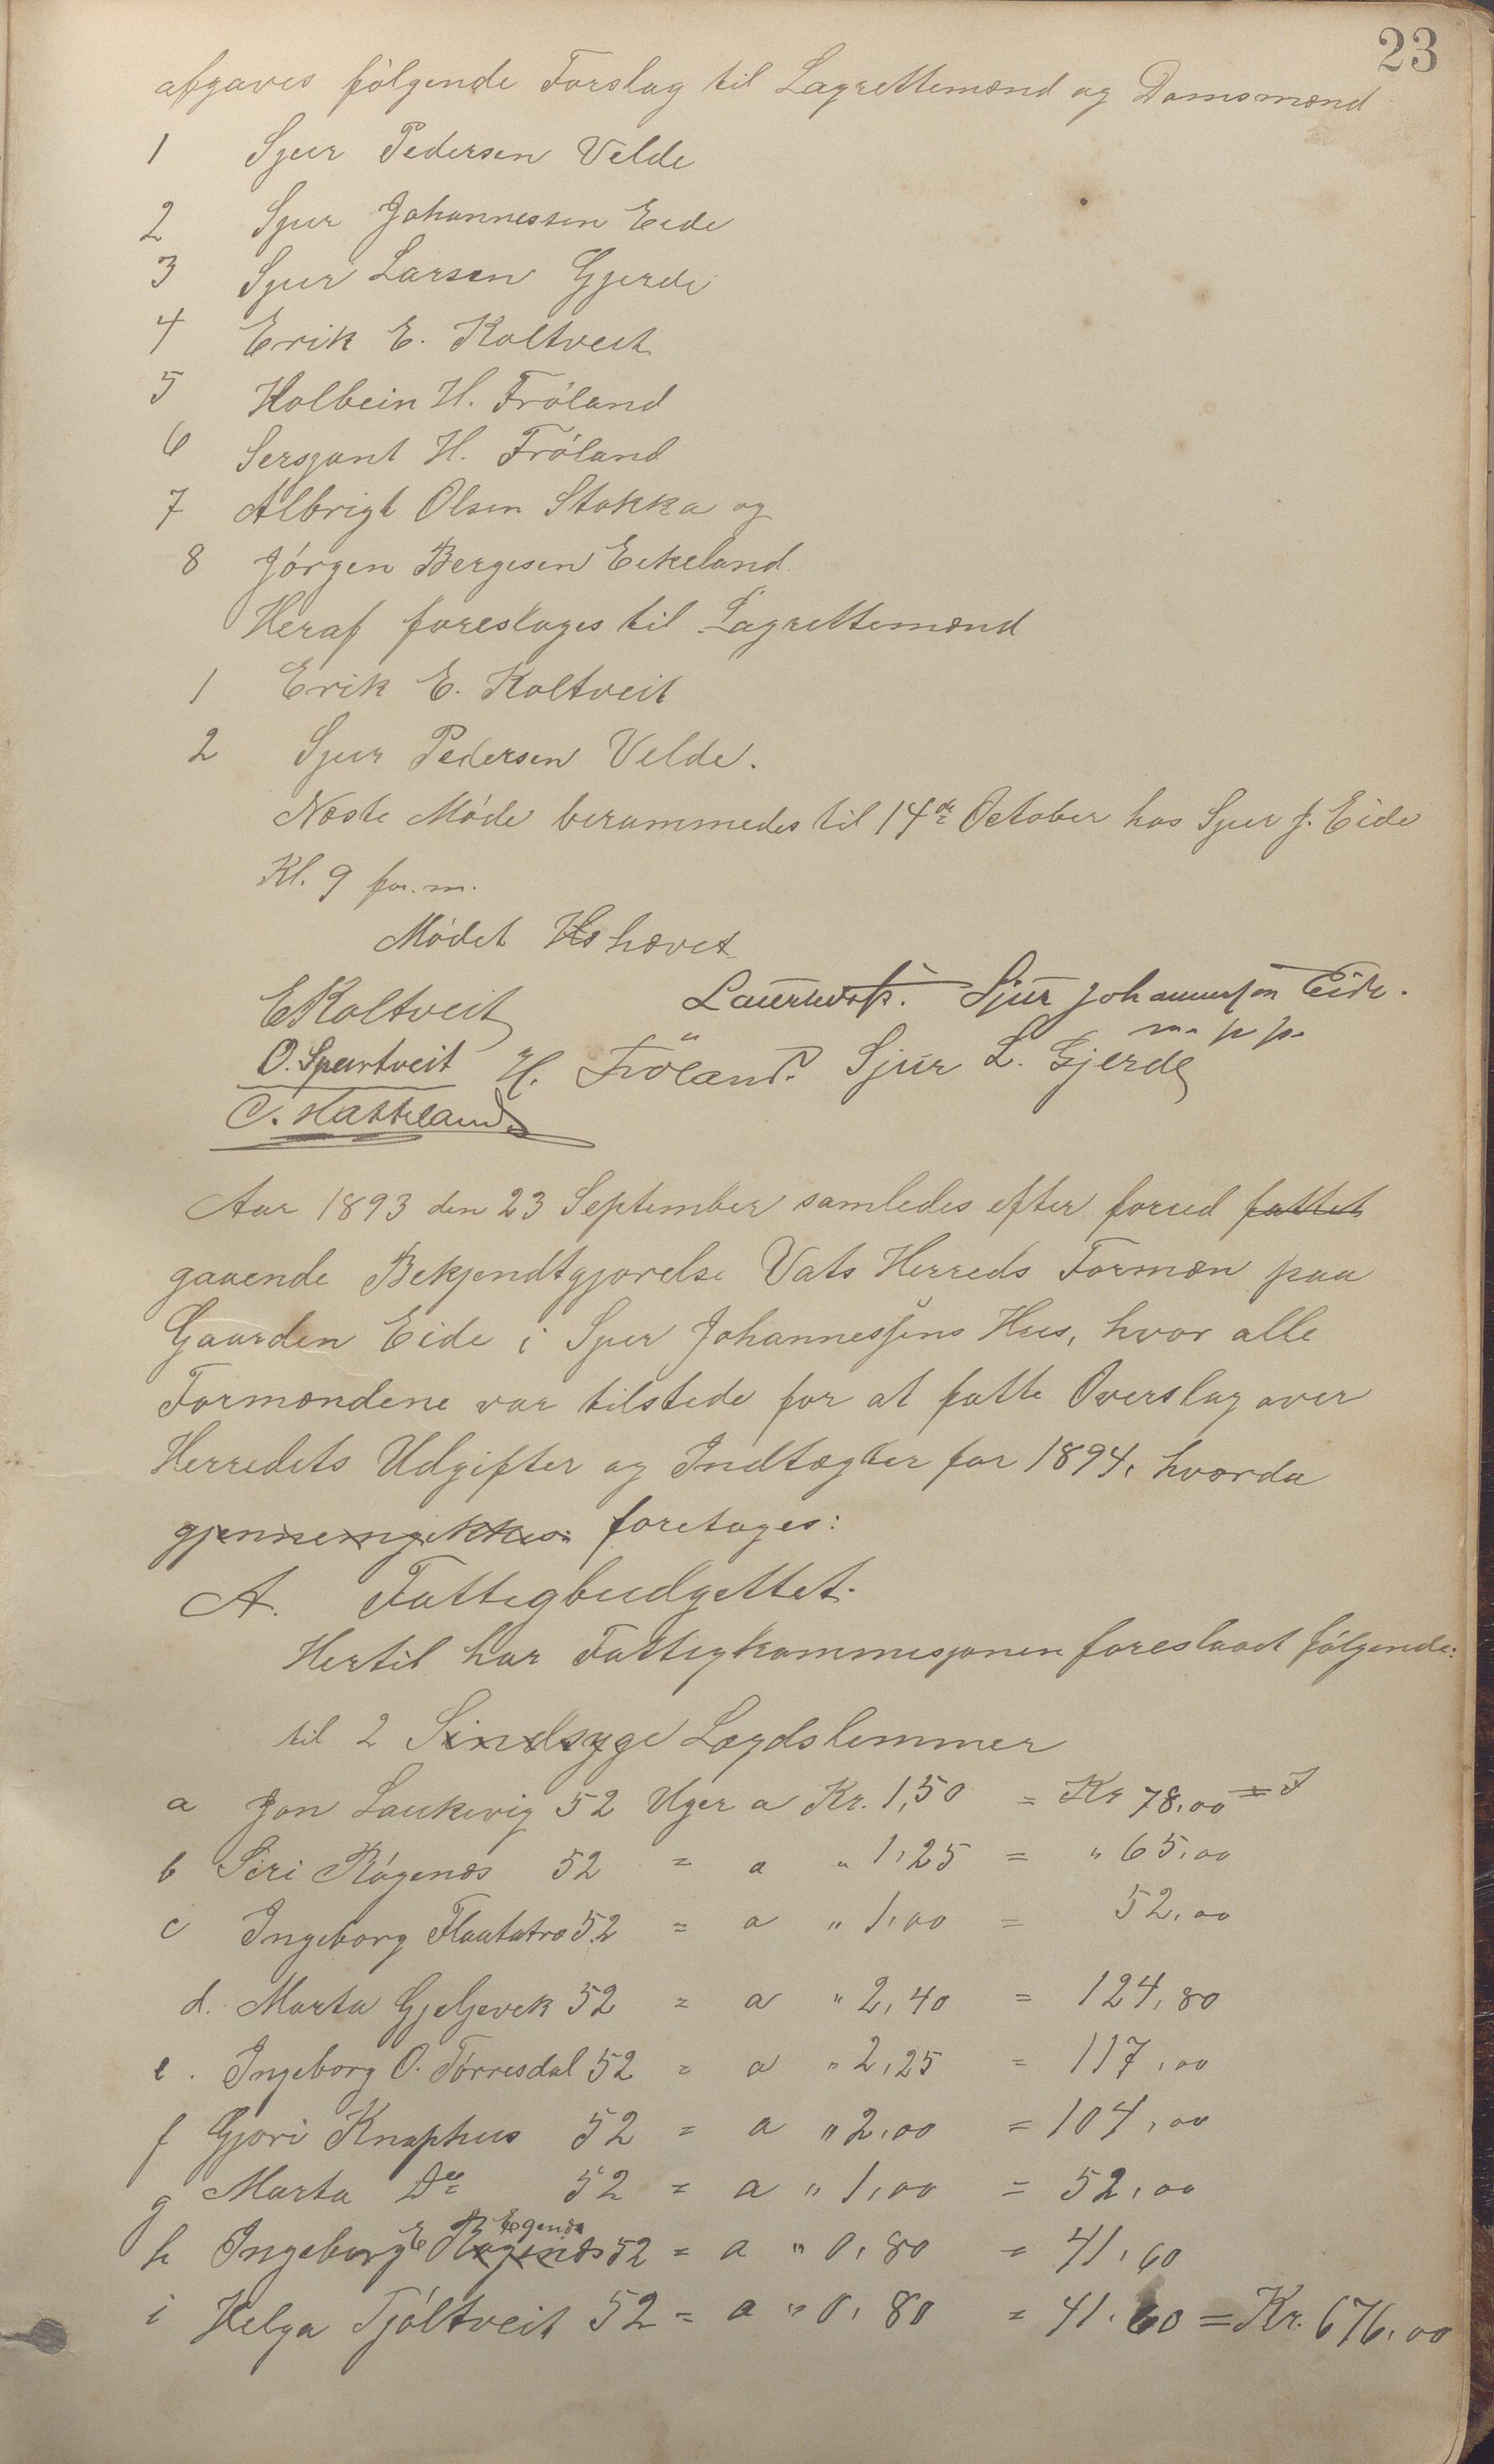 23
afgaves følgende Forslag til Lagrettemænd og Domsmænd
1 Sjur Pedersen Velde
2 Sjur Johannessen Eide
3 Sjur Larsen Gjerde
4 Erik E. Koltveit
5 Kolbein H. Frøland
6 Sersjant H. Frøland
7 Albrigt Olsen Stokka og
8 Jørgen Bergesen Eikeland.
Heraf foreslages til Lagrettemænd
1 Erik E. Koltveit
2 Sjur Pedersen Velde.
Næste Møde berammedes til 14de October hos Sjur J. Eide
Kl. 9 for. m.
Mødet hævet
EKoltveit Sjur Johannessen Eide.
m p p.
O. Spurtveit H. Frøland. Sjur L. Gjerde
C. Hatteland.
Aar 1893 den 23 September samledes efter forud fattet
gaaende Bekjendtgjørelse Vats Herreds Formæn paa
Gaarden Eide i Sjur Johannessens Hus, hvor alle
Formændene var tilstede for at fatte Overslag over
Herredets Udgifter og Indtægter for 1894, hvorda
gjennemgikkes: foretages:
A. Fattigbudgettet.
Hertil har Fattigkommisjonen foreslaaet følgende:
til 2 Sindsyge Lægdslemmer
a Jon Laukvig 52 Uger a Kr. 1,50 = Kr 78,00
b Siri Røgenæs 52 = a " 1,25 = " 65,00
c Ingeborg Flaatatræ 52 = a " 1,00 = 52,00
d. Marta Gjeljevik 52 = a " 2,40 = 124,80
e. Ingeborg O. Tørresdal 52 = a " 2,25 = 117,00
f Gjøri Knaphus 52 = a " 2,00 = 104,00
g Marta Do 52 = a " 1,00 = 52,00
h Ingeborg E Røgenæs 52 = a " 0,80 = 41,60
i Helga Tjøltveit 52 = a " 0,80 = 41,60 = Kr. 676,00